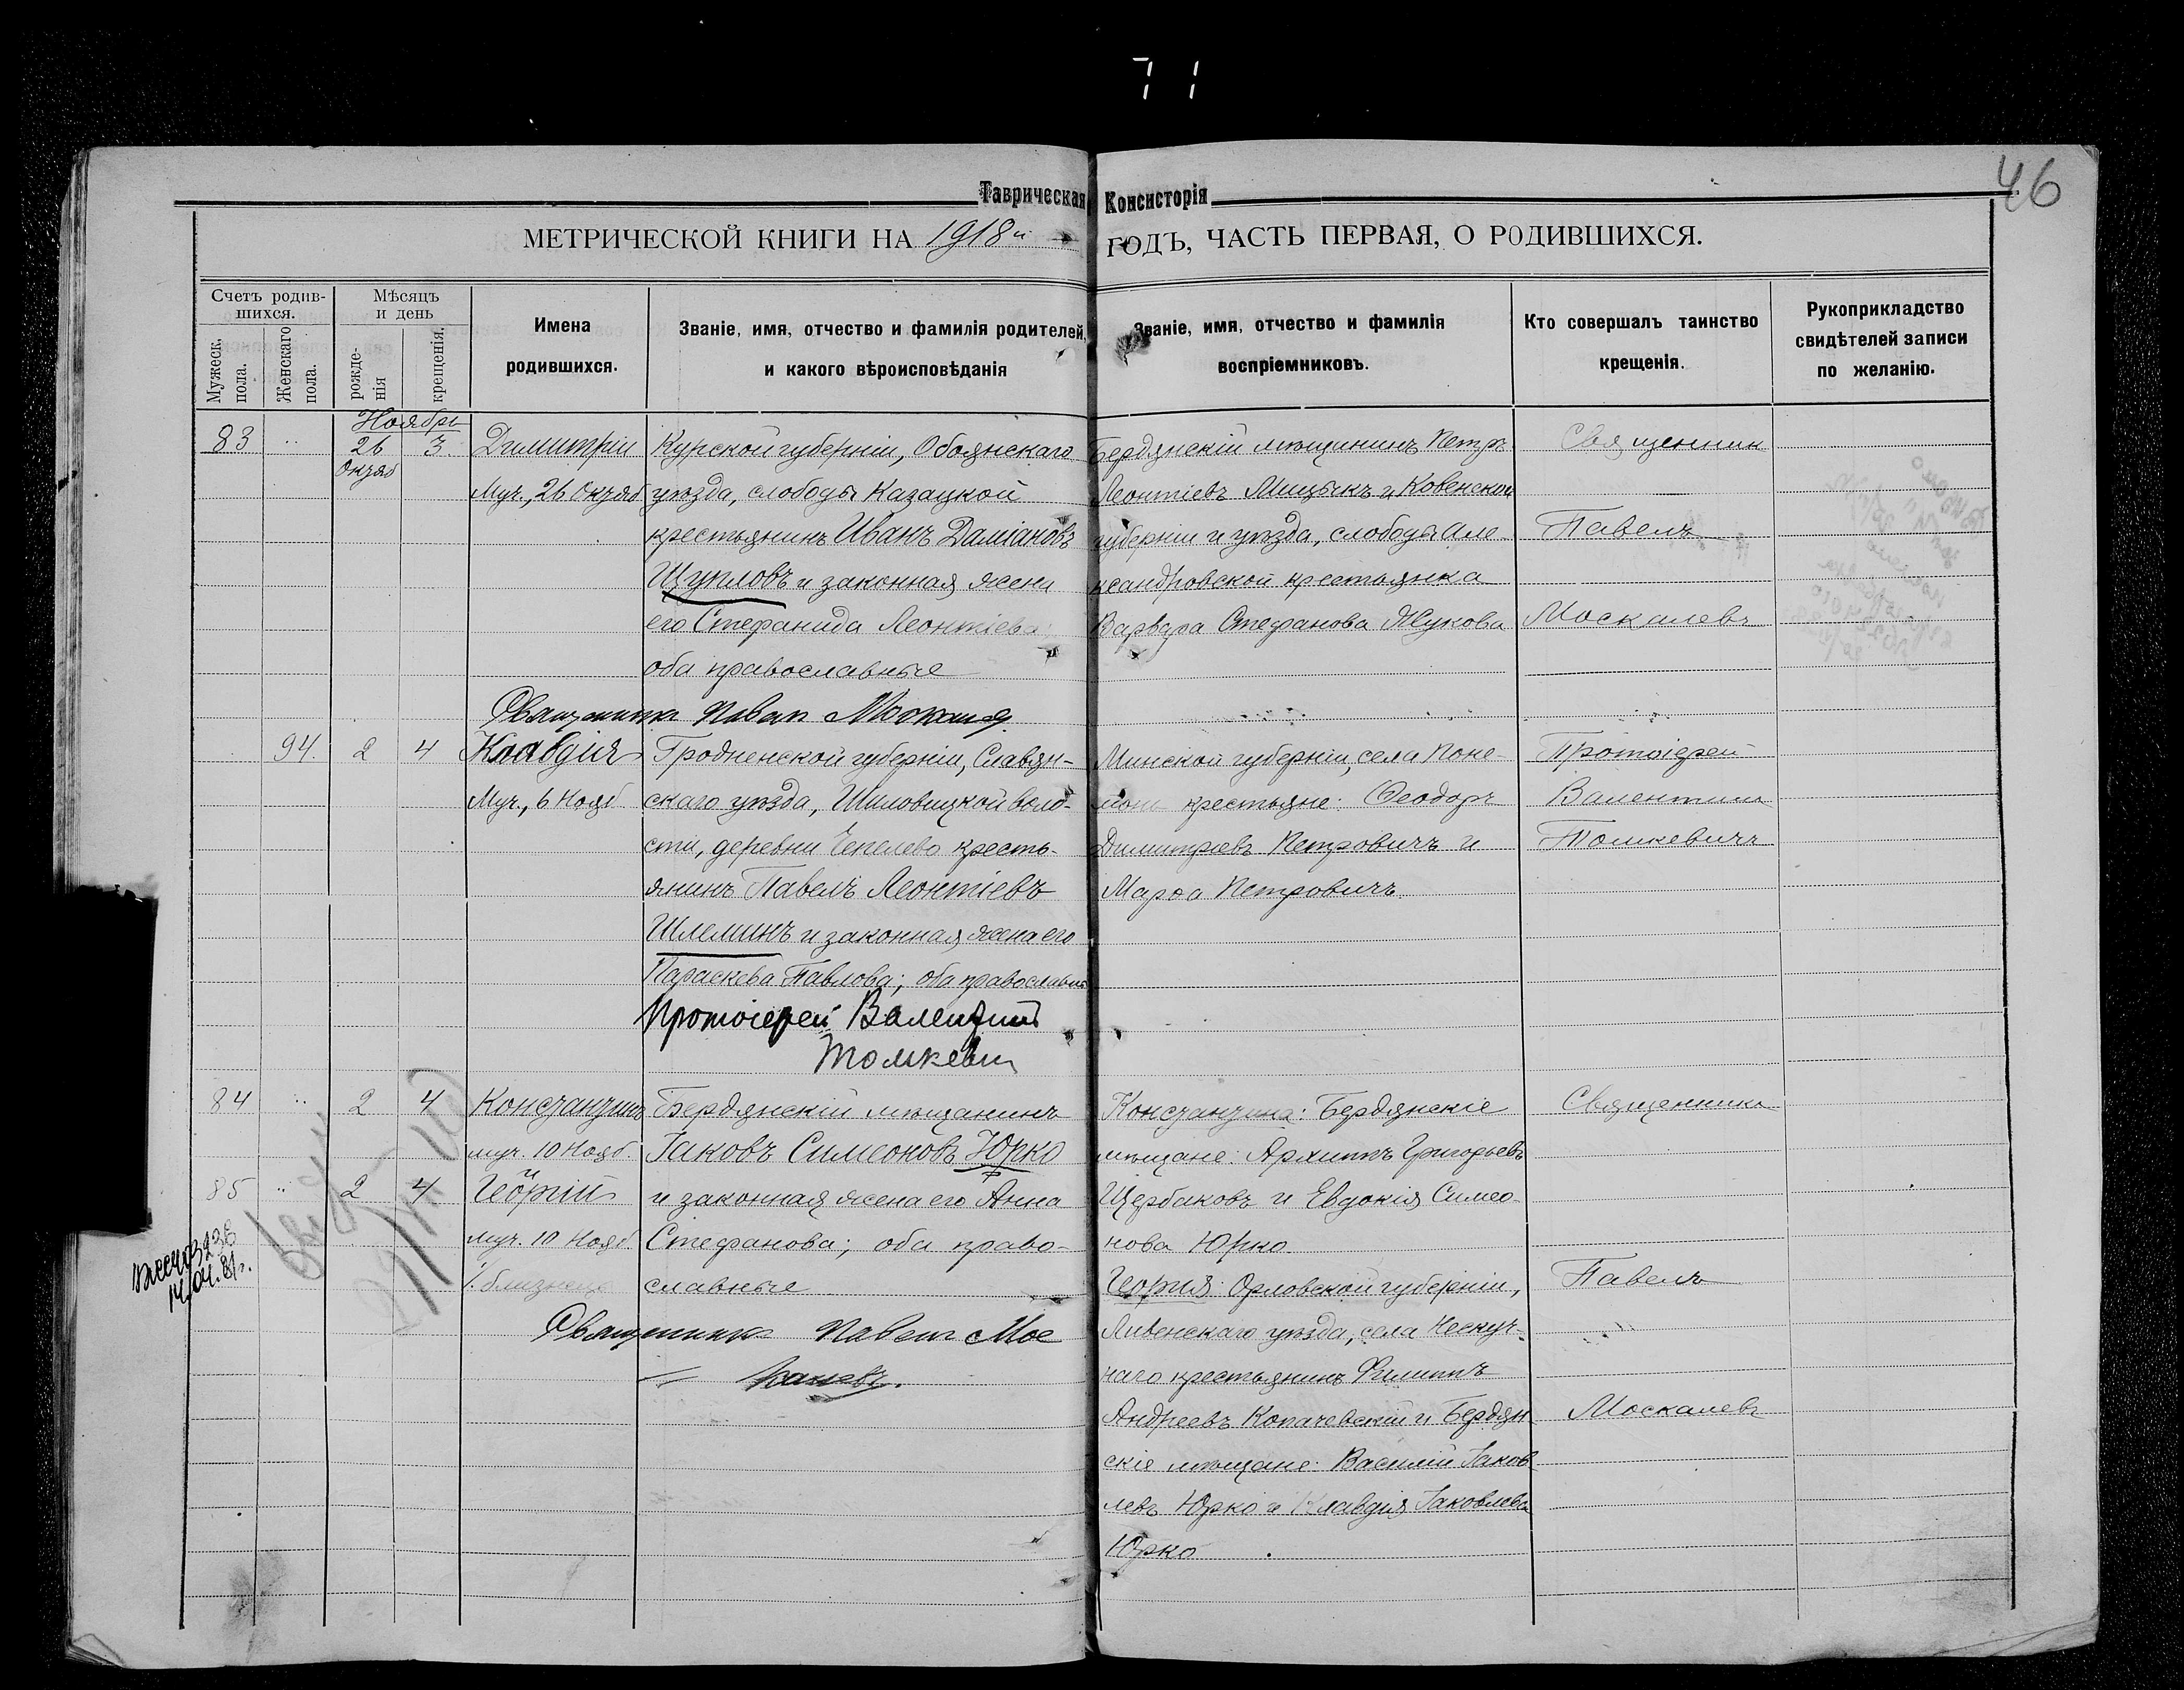 71
46
Таврическая Консисторія
МЕТРИЧЕСКОЙ КНИГИ НА 1918й ГОДЪ, ЧАСТЬ ПЕРВАЯ, О РОДИВШИХСЯ.
Счетъ родив-
шихся.
Мужеск. пола.
Женскаго пола.
Мѣсяцъ
и день
рожде-
нія
крещенія.
Имена
родившихся.
Званіе, имя, отчество и фамилія родителей,
и какого вѣроисповѣданія
Званіе, имя, отчество и фамилія
воспріемниковъ.
Кто совершалъ таинство
крещенія.
Рукоприкладство
свидѣтелей записи
по желанію.
Ноябрь
83 26 3
Октяб
Димитрій
Муч., 26 Октяб
Курской губерніи, Обоянскаго
уѣзда, слободы Казацкой
крестьянинъ Иванъ Даміановъ
Щупловъ и законная жена
его Стефанида Леонтіева;
оба православные
Бердянскій мѣщанинъ Петръ
Леонтіевъ Мицыкъ и Ковенской
губерніи и уѣзда, слободы Але-
ксандровской крестьянка
Варвара Стефанова Жукова
Священникъ
Павелъ
Москалевъ
Священникъ Павелъ
94. 2 4
Клавдія
Муч., 6 Нояб
Гродненской губерніи, Славян-
скаго уѣзда, Шиловицкой воло-
сти, деревни Чепелево кресть-
янинъ Павелъ Леонтіевъ
Шлеминъ и законная жена его
Параскева Павлова; оба православные
Протоіерей Валентинъ
Томкевич
Минской губерніи, села Поне-
крестьяне: Ѳеодоръ
Димитріевъ Петровичъ и
Марѳа Петровичъ.
Протоіерей
Валентинъ
Томкевичъ
84 2 4
Константинъ
муч. 10 Нояб.
85 2 4
Георгій
муч. 10 Нояб.
близнецы
Бердянскій мѣщанинъ
Іаковъ Симеоновъ Юрко
и законная жена его Анна
Стефанова; оба право-
славные
Священникъ Павелъ Мос
калевъ.
Константина: Бердянскіе
мѣщане: Архиппъ Григорьевъ
Щербаковъ и Евдокія Симео-
нова Юрко.
Георгія: Орловской губерніи,
Ливенскаго уѣзда, села Нескуч-
наго крестьянинъ Филиппъ
Андреевъ Копачевскій и Бердян-
скіе мѣщане: Василій Іаков-
левъ Юрко и Клавдія Іаковлева
Юрко
Священникъ
Павелъ
Москалевъ
14/04.81г.